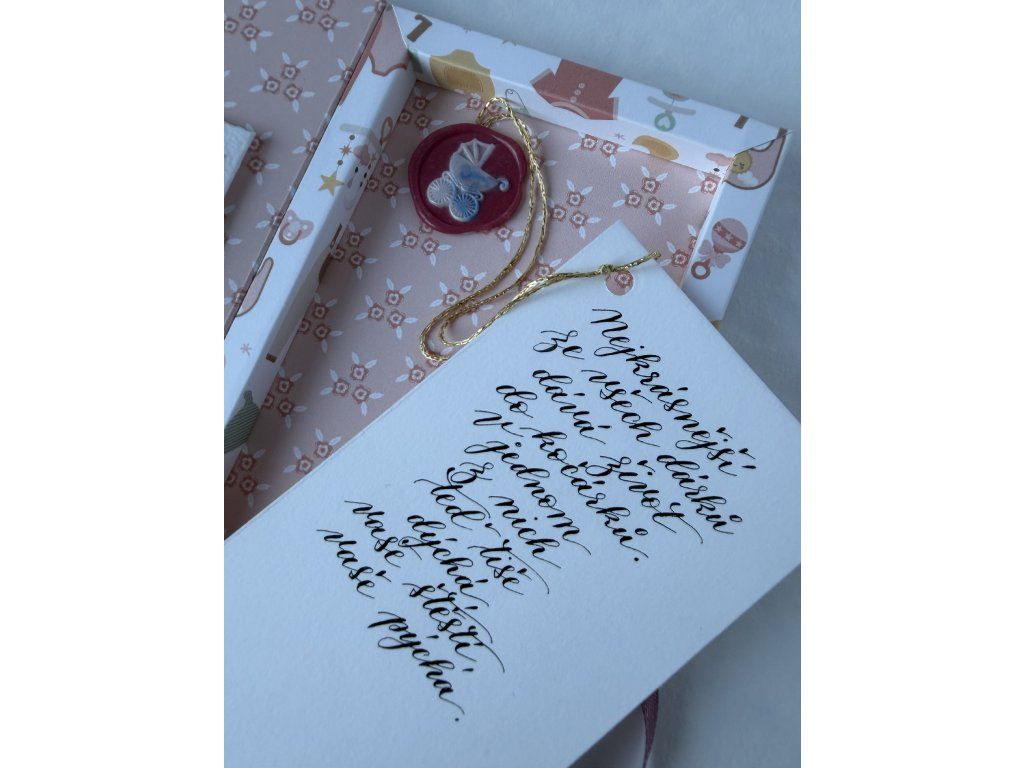 Nejkrásnější
ze všech dárků
dává život
do kočárků.
v jednom
z nich
teď tiše
dýchá
vaše štěstí
vaše pýcha.